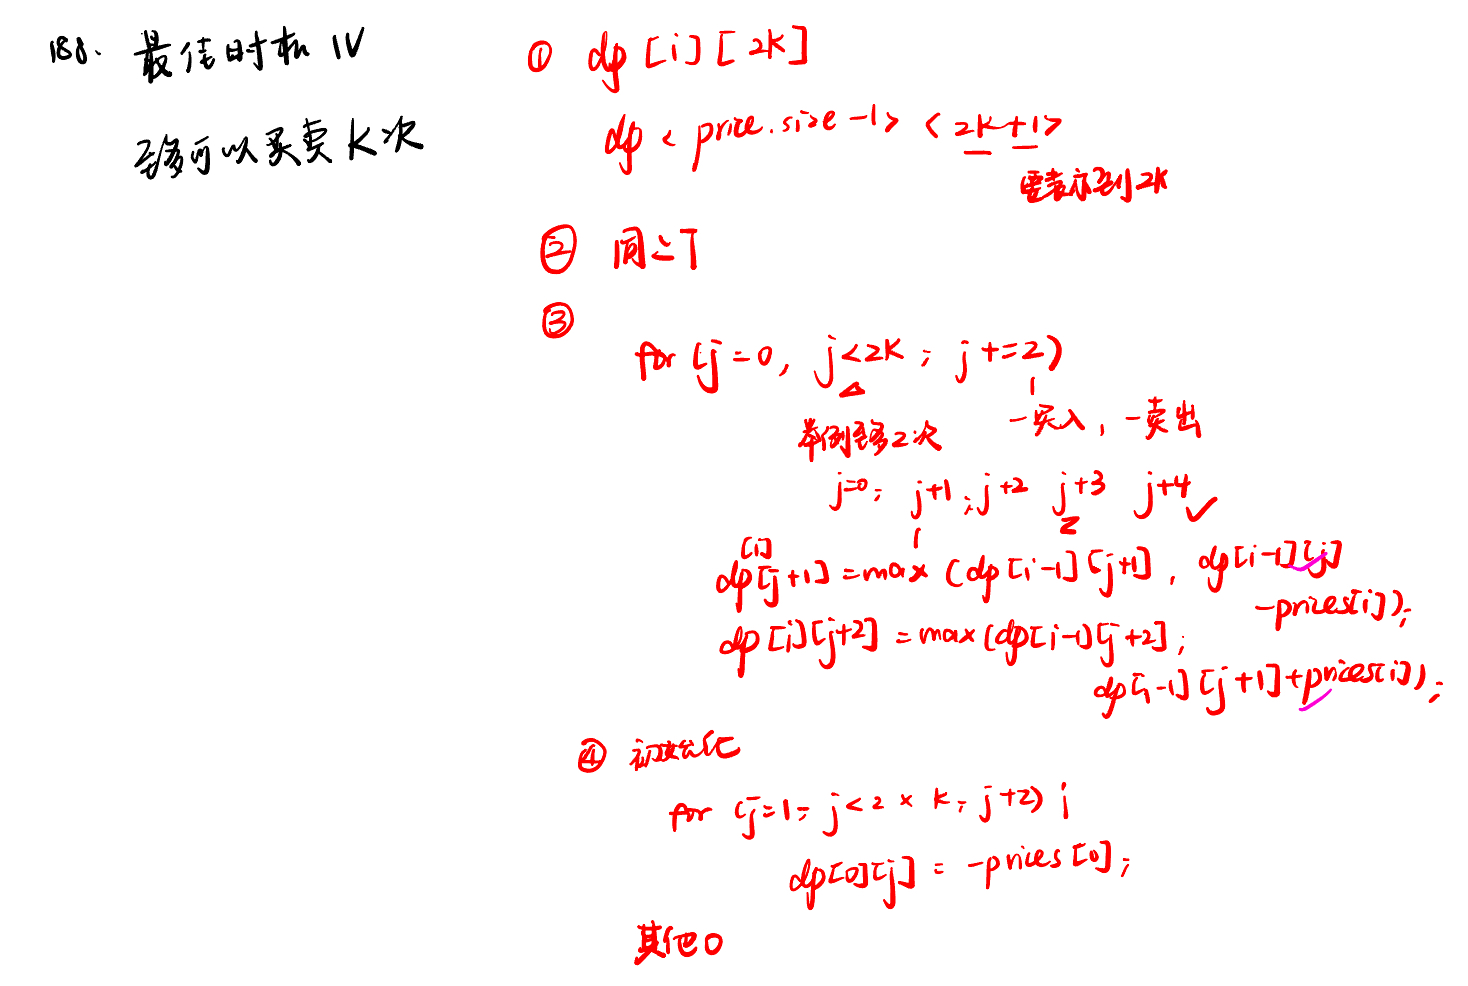 188. 最佳时机 IV
至多可以买卖 K 次
① dp [i] [2K]
dp < price.size -1> < 2K+1>
要表示到 2K
② 同上
③
for (j=0, j<2K ; j+=2)
一买入, 一卖出
举例至多2次
j=0; j+1; j+2 j+3 j+4
1 2
[i]
dp[j+1] = max (dp[i-1][j+1], dp[i-1][j]
-prices[i]);
dp[i][j+2] = max(dp[i-1][j+2];
dp[i-1][j+1]+prices[i]);
④ 初始化
for (j=1; j<2 × K; j+2) {
dp[0][j] = -prices[0];
其他 0